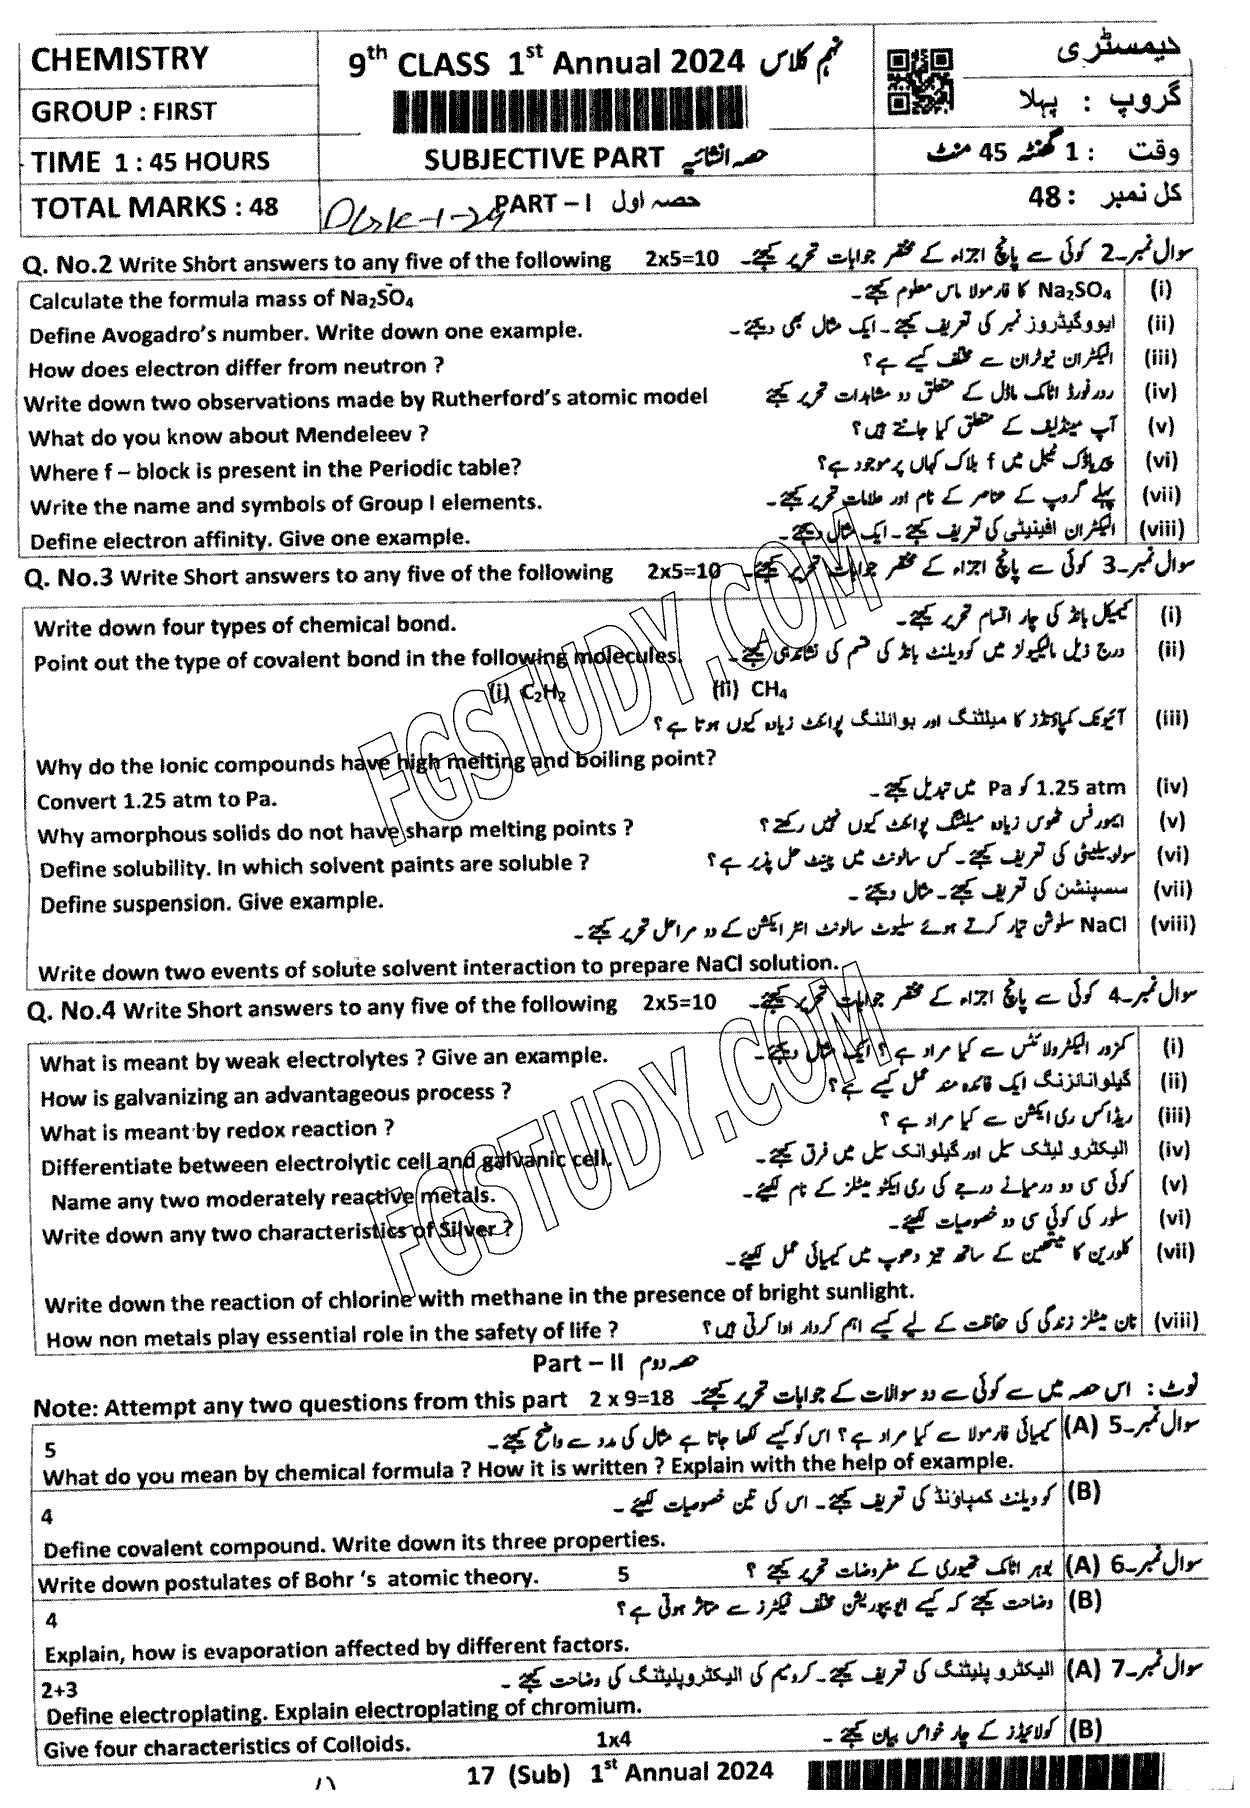 CHEMISTRY
9th CLASS 1st Annual 2024 نہم کلاس
کیمسٹری
GROUP : FIRST
گروپ : پہلا
TIME 1 : 45 HOURS
SUBJECTIVE PART حصہ انشائیہ
وقت : 1 گھنٹہ 45 منٹ
TOTAL MARKS : 48
PART – I حصہ اول
کل نمبر : 48
Q. No.2 Write Short answers to any five of the following 2x5=10 سوال نمبر۔2 کوئی سے پانچ اجزاء کے مختصر جوابات تحریر کیجئے۔
Calculate the formula mass of Na₂SO₄ Na₂SO₄ کا فارمولا ماس معلوم کیجئے۔ (i)
Define Avogadro's number. Write down one example. ایووگیڈروز نمبر کی تعریف کیجئے۔ ایک مثال بھی دیجئے۔ (ii)
How does electron differ from neutron ? الیکٹران نیوٹران سے مختلف کیسے ہے؟ (iii)
Write down two observations made by Rutherford's atomic model ردرفورڈ اٹامک ماڈل کے متعلق دو مشاہدات تحریر کیجئے (iv)
What do you know about Mendeleev ? آپ مینڈلیف کے متعلق کیا جانتے ہیں؟ (v)
Where f – block is present in the Periodic table? پیریاڈک ٹیبل میں f بلاک کہاں پر موجود ہے؟ (vi)
Write the name and symbols of Group I elements. پہلے گروپ کے عناصر کے نام اور علامات تحریر کیجئے۔ (vii)
Define electron affinity. Give one example. الیکٹران افینیٹی کی تعریف کیجئے۔ ایک مثال دیجئے۔ (viii)
Q. No.3 Write Short answers to any five of the following 2x5=10 سوال نمبر۔3 کوئی سے پانچ اجزاء کے مختصر جوابات تحریر کیجئے۔
Write down four types of chemical bond. کیمیکل بانڈ کی چار اقسام تحریر کیجئے۔ (i)
Point out the type of covalent bond in the following molecules. درج ذیل مالیکیولز میں کوویلنٹ بانڈ کی قسم کی نشاندہی کیجئے۔ (ii)
(i) C₂H₂ (ii) CH₄
آئیونک کمپاؤنڈز کا میلٹنگ اور بوائلنگ پوائنٹ زیادہ کیوں ہوتا ہے؟ (iii)
Why do the Ionic compounds have high melting and boiling point?
Convert 1.25 atm to Pa. 1.25 atm کو Pa میں تبدیل کیجئے۔ (iv)
Why amorphous solids do not have sharp melting points ? ایمورفس ٹھوس زیادہ میلٹنگ پوائنٹ کیوں نہیں رکھتے؟ (v)
Define solubility. In which solvent paints are soluble ? سولوبیلیٹی کی تعریف کیجئے۔ کس سالونٹ میں پینٹ حل پذیر ہے؟ (vi)
Define suspension. Give example. سسپنشن کی تعریف کیجئے۔ مثال دیجئے۔ (vii)
NaCl سلوشن تیار کرتے ہوئے سلیوٹ سالونٹ انٹر ایکشن کے دو مراحل تحریر کیجئے۔ (viii)
Write down two events of solute solvent interaction to prepare NaCl solution.
Q. No.4 Write Short answers to any five of the following 2x5=10 سوال نمبر۔4 کوئی سے پانچ اجزاء کے مختصر جوابات تحریر کیجئے۔
What is meant by weak electrolytes ? Give an example. کمزور الیکٹرولائٹس سے کیا مراد ہے؟ ایک مثال دیجئے۔ (i)
How is galvanizing an advantageous process ? گیلوانائزنگ ایک فائدہ مند عمل کیسے ہے؟ (ii)
What is meant by redox reaction ? ریڈاکس ری ایکشن سے کیا مراد ہے؟ (iii)
Differentiate between electrolytic cell and galvanic cell. الیکٹرو لیٹک سیل اور گیلوانک سیل میں فرق کیجئے۔ (iv)
Name any two moderately reactive metals. کوئی سی دو درمیانے درجے کی ری ایکٹو میٹلز کے نام لکھیے۔ (v)
Write down any two characteristics of Silver ? سلور کی کوئی سی دو خصوصیات لکھیئے۔ (vi)
کلورین کا میتھین کے ساتھ تیز دھوپ میں کیمیائی عمل لکھیئے۔ (vii)
Write down the reaction of chlorine with methane in the presence of bright sunlight.
How non metals play essential role in the safety of life ? نان میٹلز زندگی کی حفاظت کے لیے کیسے اہم کردار ادا کرتی ہیں؟ (viii)
Part – II حصہ دوم
Note: Attempt any two questions from this part 2 x 9=18 نوٹ : اس حصہ میں سے کوئی سے دو سوالات کے جوابات تحریر کیجئے۔
5 کیمیائی فارمولا سے کیا مراد ہے؟ اس کو کیسے لکھا جاتا ہے مثال کی مدد سے واضح کیجئے۔ (A) سوال نمبر۔5
What do you mean by chemical formula ? How it is written ? Explain with the help of example.
4 کوویلنٹ کمپاؤنڈ کی تعریف کیجئے۔ اس کی تین خصوصیات لکھیئے۔ (B)
Define covalent compound. Write down its three properties.
Write down postulates of Bohr 's atomic theory. 5 بوہر اٹامک تھیوری کے مفروضات تحریر کیجئے ؟ (A) سوال نمبر۔6
4 وضاحت کیجئے کہ کیسے ایوپوریشن مختلف فیکٹرز سے متاثر ہوتی ہے؟ (B)
Explain, how is evaporation affected by different factors.
2+3 الیکٹرو پلیٹنگ کی تعریف کیجئے۔ کرومیم کی الیکٹروپلیٹنگ کی وضاحت کیجئے۔ (A) سوال نمبر۔7
Define electroplating. Explain electroplating of chromium.
Give four characteristics of Colloids. 1x4 کولائیڈز کے چار خواص بیان کیجئے۔ (B)
17 (Sub) 1st Annual 2024
FGSTUDY.COM
FGSTUDY.COM